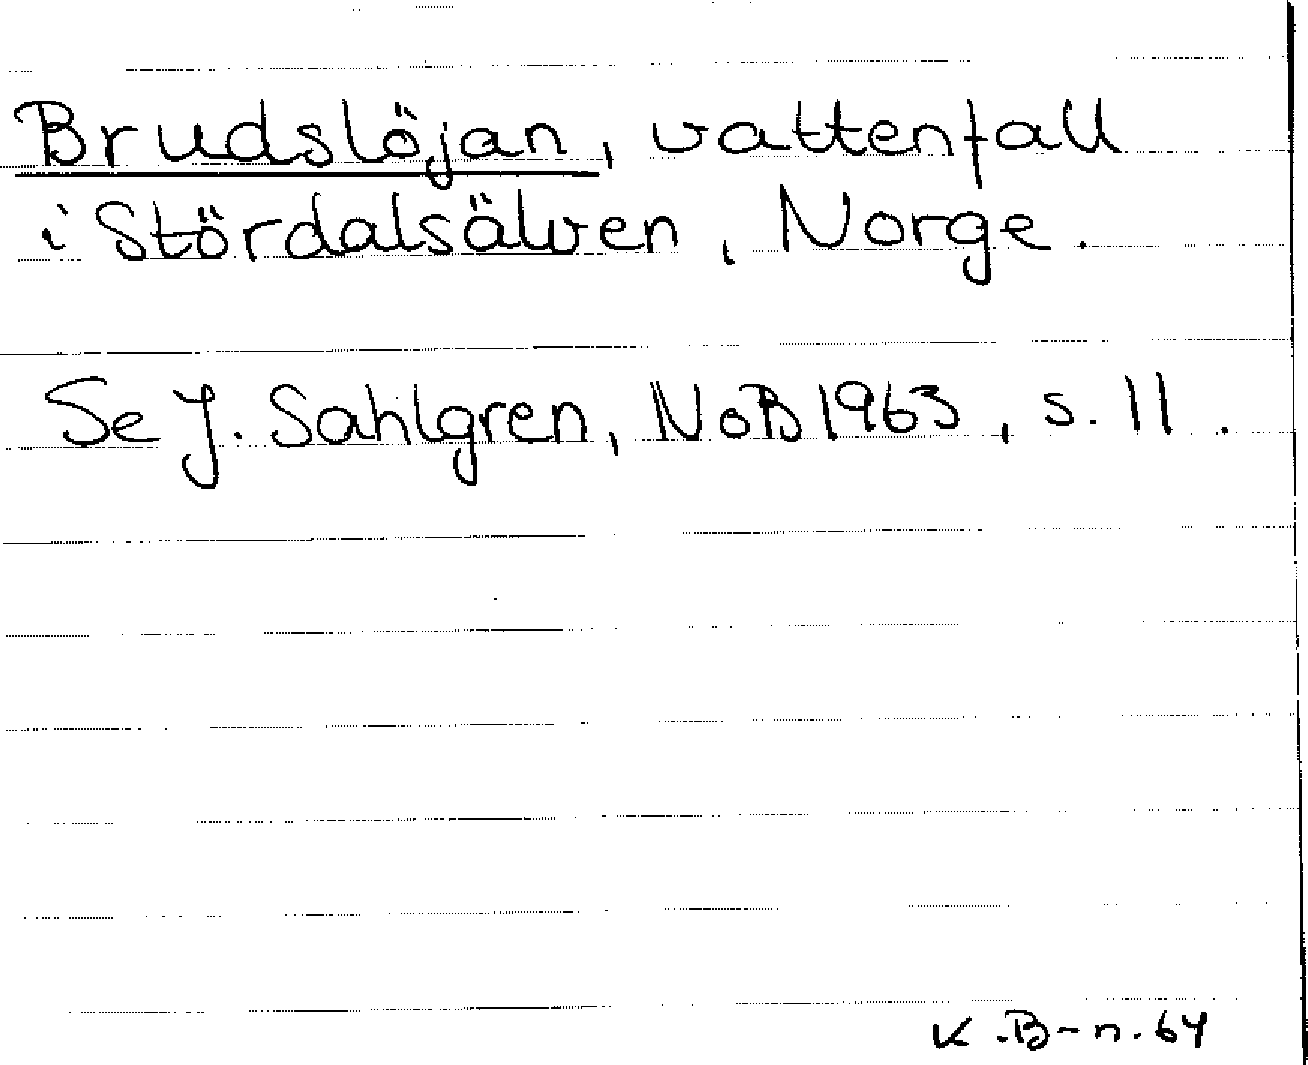 Brudslöjan, vattenfall
i Stördalsälven, Norge.
Se J. Sahlgren, NoB 1963, s. 11.
K.B-n. 64